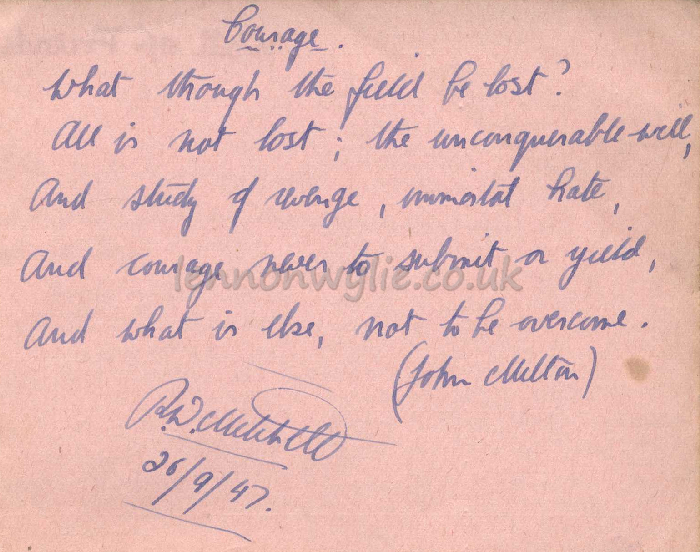 Courage.
What though the field be lost?
All is not lost; the unconquerable will,
And study of revenge, immortal hate,
And courage never to submit or yield,
lennonwylie.co.uk
And what is else, not to be overcome.
(John Milton)
R.W. Mitchell
26/9/47.